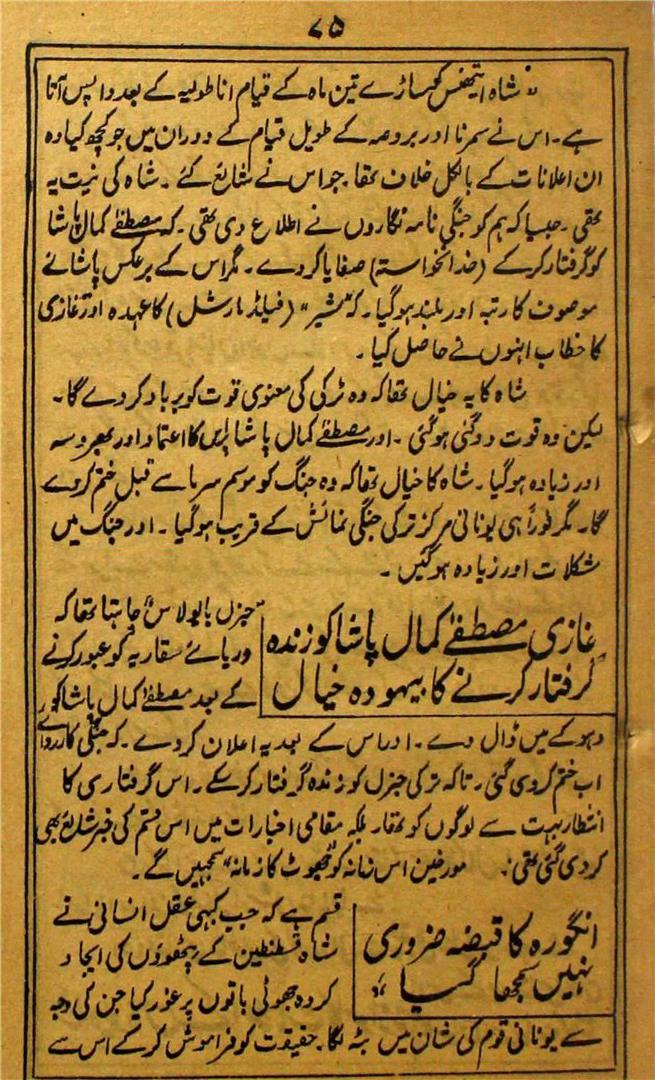 ۷۵
"شاہ ایتھنس کو ساڑے تین ماہ کے قیام اناطولیہ کے بعد واپس آتا
ہے۔ اس نے سمرنا اور بروصہ کے طویل قیام کے دوران میں جو کچھ کیا وہ
ان اعلانات کے بالکل خلاف تھا جو اس نے شایع کئے۔ شاہ کی نیت یہ
تھی۔ جیسا کہ ہم کو جنگی نامہ نگاروں نے اطلاع دی تھی۔ کہ مصطفےٰ کمال پاشا
کو گرفتار کرکے (خدانخواستہ) صفایا کردے۔ مگر اس کے برعکس پاشائے
موصوف کا رتبہ اور بلند ہوگیا۔ کہ "مشیر" (فیلڈ مارشل) کا عہدہ اور غازی
کا خطاب انہوں نے حاصل کیا۔
شاہ کا یہ خیال تھا کہ وہ ٹرکی کی معنوی قوت کو برباد کردے گا۔
لیکن وہ قوت دوگنی ہوگئی۔ اور مصطفےٰ کمال پاشا پر اس کا اعتماد اور بھروسہ
اور زیادہ ہوگیا۔ شاہ کا خیال تھا کہ وہ جنگ کو موسم سرما سے قبل ختم کردے
گا۔ مگر فوراً ہی یونانی مرکز ترکی جنگی نمائش کے قریب ہوگیا۔ اور جنگ میں
مشکلات اور زیادہ ہوگئیں۔
غازی مصطفےٰ کمال پاشا کو زندہ
گرفتار کرنے کا بیہودہ خیال
"جنرل پاپولاس" چاہتا تھا کہ
دریائے سقاریہ کو عبور کرنے
کے بعد مصطفےٰ کمال پاشا کو
دہوکے میں ڈال دے۔ اور اس کے بعد یہ اعلان کردے۔ کہ جنگی کارروائی
اب ختم کردی گئی۔ تاکہ ترکی جنرل کو زندہ گرفتار کرسکے۔ اس گرفتاری کا
انتظار بہت سے لوگوں کو تھا۔ بلکہ مقامی اخبارات میں اس قسم کی خبر شایع بھی
کردی گئی تھی۔ مورخین اس زمانہ کو "جھوٹ کا زمانہ" سمجہیں گے۔
انگورہ کا قبضہ ضروری
نہیں سمجھا گیا
قسم ہے کہ جب کبھی عقل انسانی نے
شاہ قسطنطین کے پٹھوؤں کی ایجاد
کردہ جھوٹی باتوں پر غور کیا جن کی وجہ
سے یونانی قوم کی شان میں بٹہ لگا۔ حقیقت کو فراموش کرکے اس سے